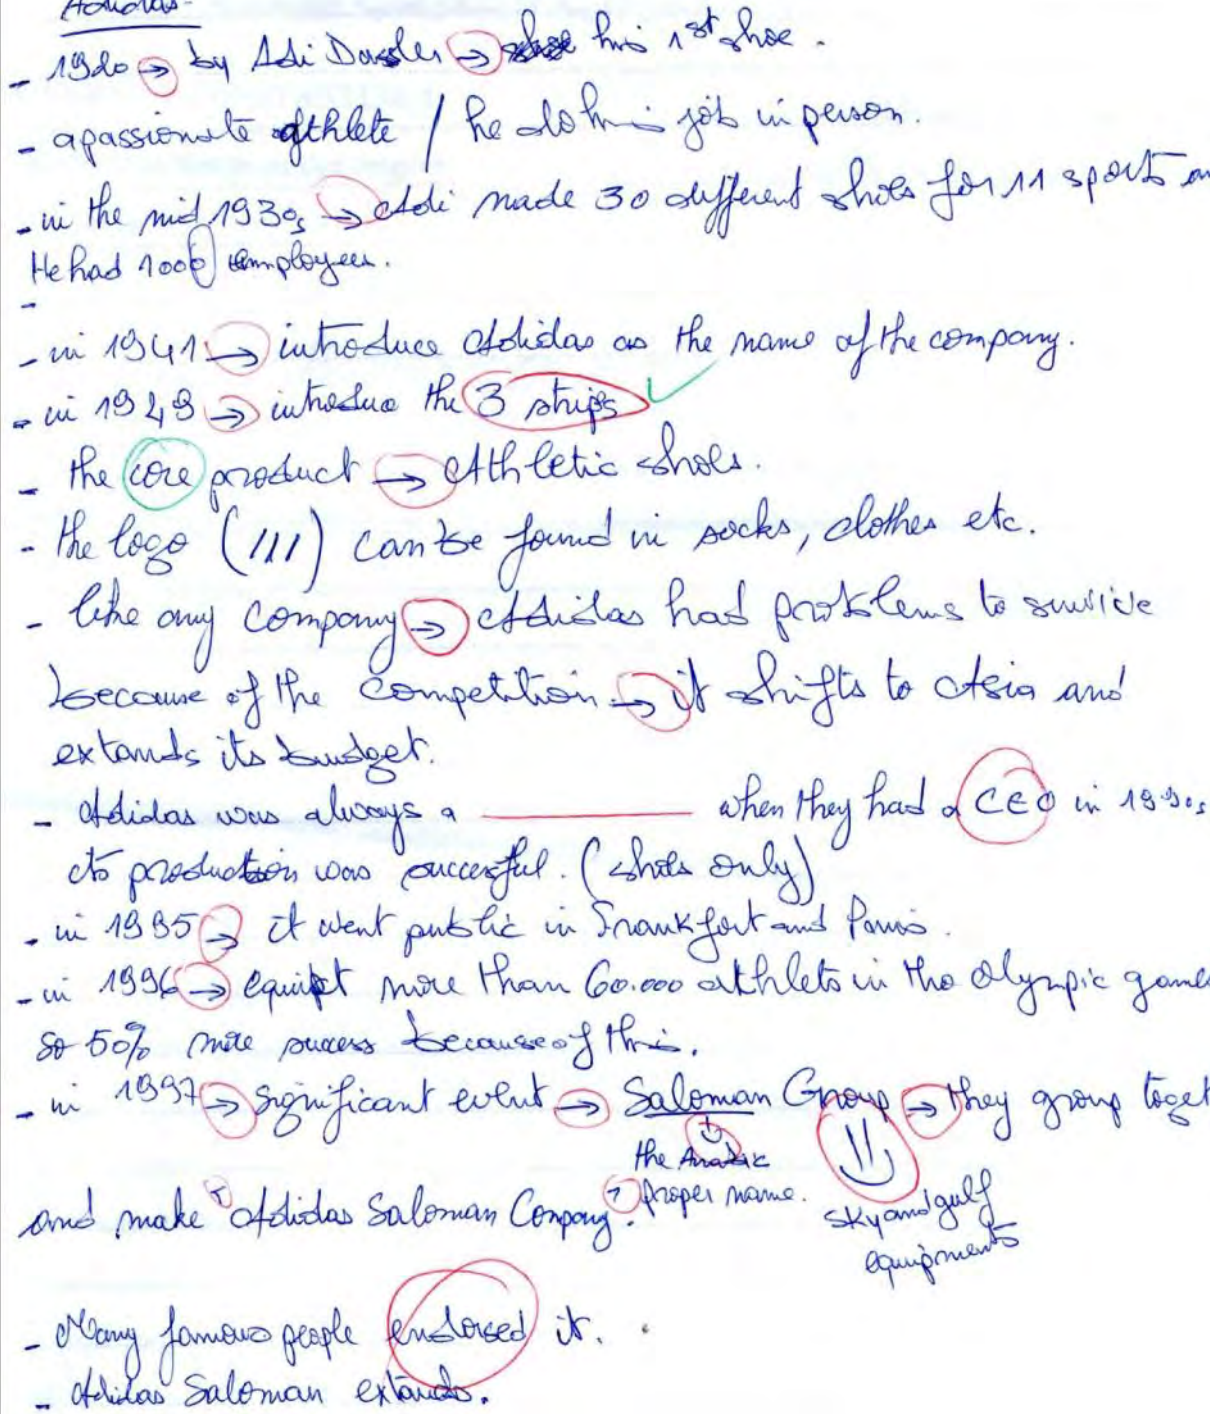 Adidas-
- 1920 → by Adi Dassler → his 1st shoe.
- a passionate athlete / he do his job in person.
- in the mid 1930s → Adi made 30 different shoes for 11 sports an
He had 1000 employees.
-
- in 1941 → introduce Adidas as the name of the company.
- in 1949 → introduce the 3 strips ✓
- the core product → Athletic shoes.
- the logo (///) can be found in socks, clothes etc.
- like any company → Adidas had problems to survive
because of the competition → it shifts to Asia and
extands its budget.
- Adidas was always a ______ when they had a CEO in 1990s
its production was successful. (shoes only)
- in 1995 → it went public in Frankfort and Paris.
- in 1996 → equipt more than 60.000 athlets in the Olympic games
so 50% more success because of this.
- in 1997 → significant event → Saloman Group → they group toget
the Arabic
and make "Adidas Saloman Company". proper name.
sky and gulf
equipments
- Many famous people endorsed it.
- Adidas Saloman extands.